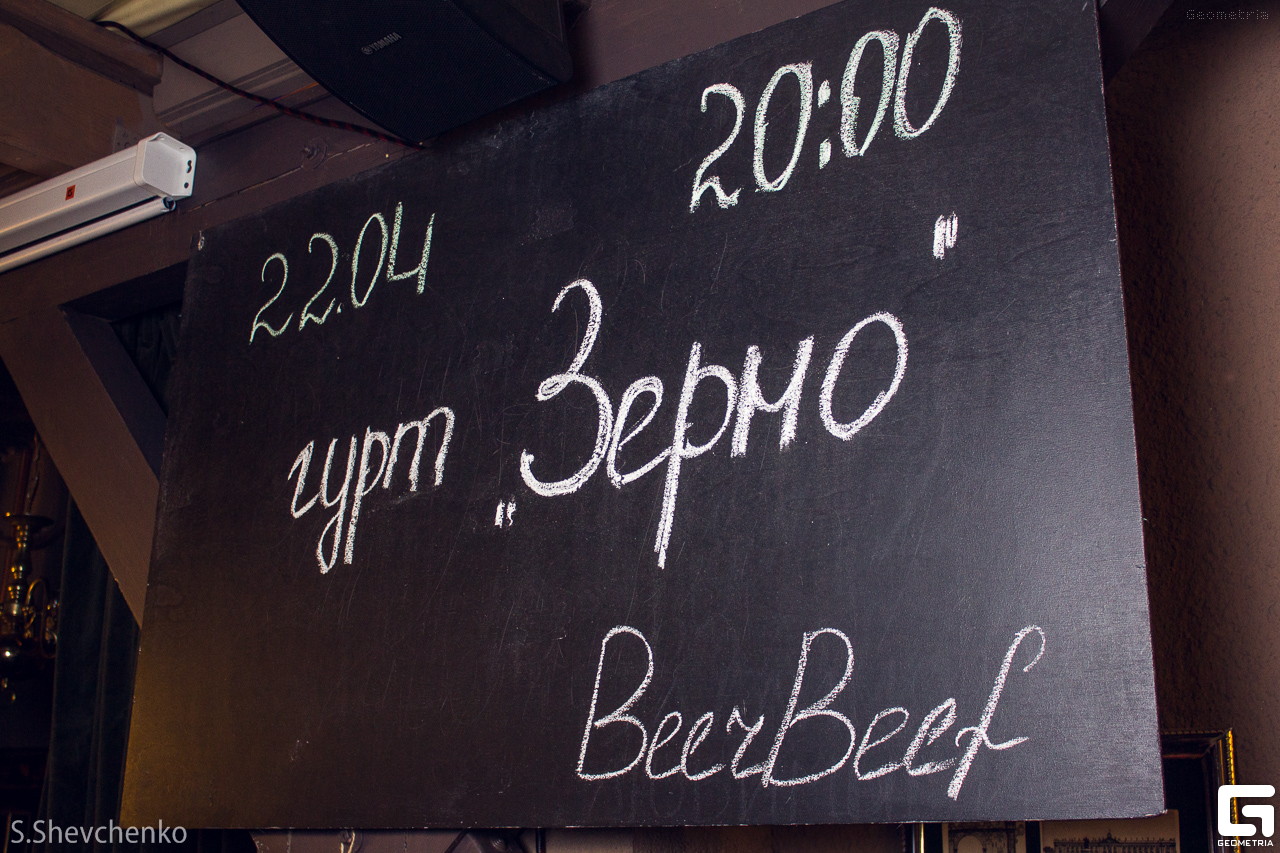 Geometria
YAMAHA
20:00
22.04
гурт „Зерно"
BeerBeef
S.Shevchenko
G
GEOMETRIA